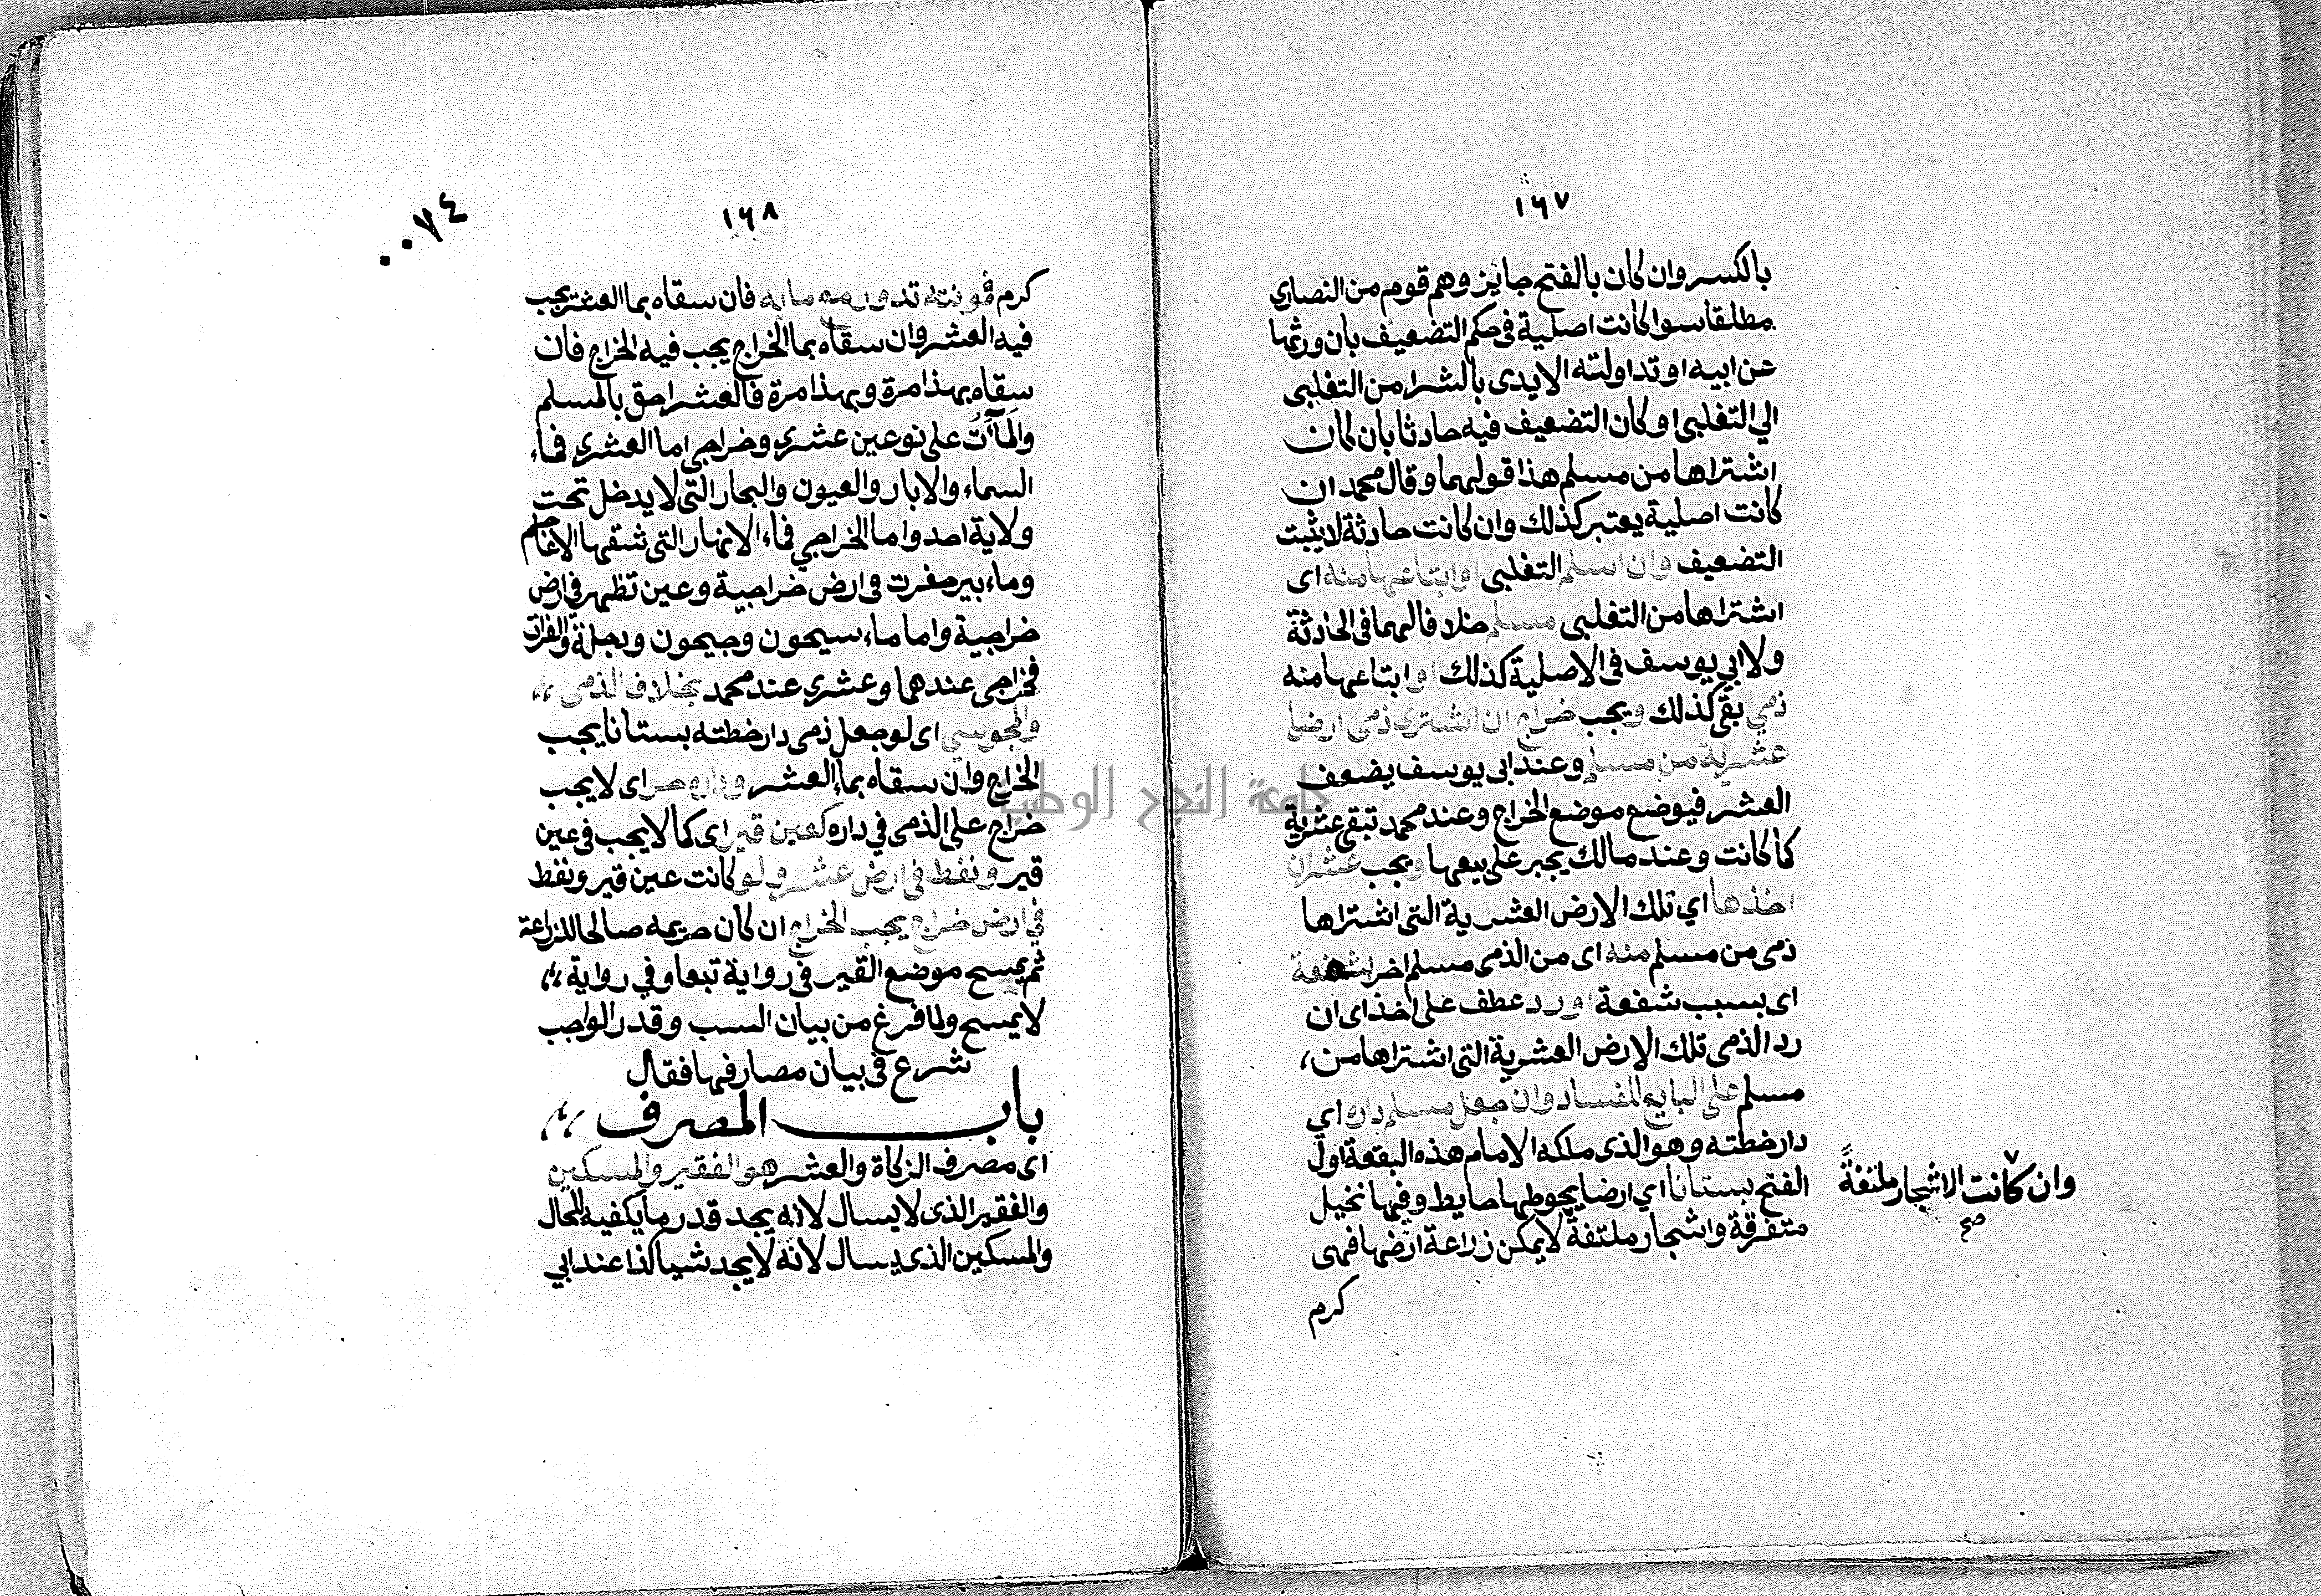 ١٦٧
بالكسر وان كان بالفتح جايز وهم قوم من النصاري
مطلقا سوا كانت اصلية في حكم التضعيف بان ورثها
عن ابيه او تداولته الايدى بالشرا من التغلبى
الي التغلبى او كان التضعيف فيه حادثا بان كان
اشتراها من مسلم هذا قولهما وقال محمد ان
كانت اصلية يعتبر كذلك وان كانت حادثة لا يثبت
التضعيف وان اسلم التغلبى او ابتاعها منه اى
اشتراها من التغلبى مسلم خلافا لهما فى الحادثة
ولابي يوسف فى الاصلية كذلك او ابتاعها منه
ذمي بقى كذلك ويجب خراج ان اشترى ذمى ارضا
عشرية من مسلم وعند ابى يوسف يضعف
العشر فيوضع موضع الخراج وعند محمد تبقى عشرية
كما كانت وعند مالك يجبر على بيعها ويجب عشر ان
اخذها اي تلك الارض العشرية التى اشتراها
ذمى من مسلم منه اى من الذمى مسلم اخر بشفعة
اى بسبب شفعة او رد عطف على اخذ اى ان
رد الذمى تلك الارض العشرية التى اشتراها من
مسلم على البايع للفساد وان جعل مسلم داره اي
دار خطته وهو الذى ملكه الامام هذه البقعة اول
الفتح بستانا اي ارضا يحوطها حايط وفيها نخيل
متفرقة واشجار ملتفة لا يمكن زراعة ارضها فهى
كرم
وان كانت الاشجار ملتفةً
صح
١٦٨
٠٠٧٤
كرم فمونته تدور مع مايه فان سقاه بما العشر يجب
فيه العشر وان سقاه بما الخراج يجب فيه الخراج فان
سقاه بهذا مرة وبهذا مرة فالعشر احق بالمسلم
والمآت على نوعين عشري وخراجي اما العشري فماء
السماء والابار والعيون والبحار التى لا يدخل تحت
ولاية احد واما الخراجي فماء الانهار التى شقها الاعاجم
وماء بير حفرت فى ارض خراجية وعين تظهر فى ارض
خراجية واما ماء سيحون وجيحون ودجلة والفرات
فخراجى عندهما وعشري عند محمد بخلاف الذمى
والمجوسي اى لو جعل ذمى دار خطته بستانا يجب
الخراج وان سقاه بماء العشر وداره حر اى لا يجب
خراج على الذمى في داره كعين قير اى كما لا يجب فى عين
قير ونفط فى ارض عشر ولو كانت عين قير ونفط
في ارض خراج يجب الخراج ان كان حريمه صالحا للزراعة
ثم يمسح موضع القير فى رواية تبعا وفي رواية
لا يمسح ولما فرغ من بيان السبب وقدر الواجب
شرع فى بيان مصارفها فقال
باب المصرف
اى مصرف الزكاة والعشر هو الفقير والمسكين
والفقير الذى لا يسال لانه يجد قدر ما يكفيه للحال
والمسكين الذى يسال لانه لا يجد شيا كذا عند ابي
جامعة النجاح الوطنية